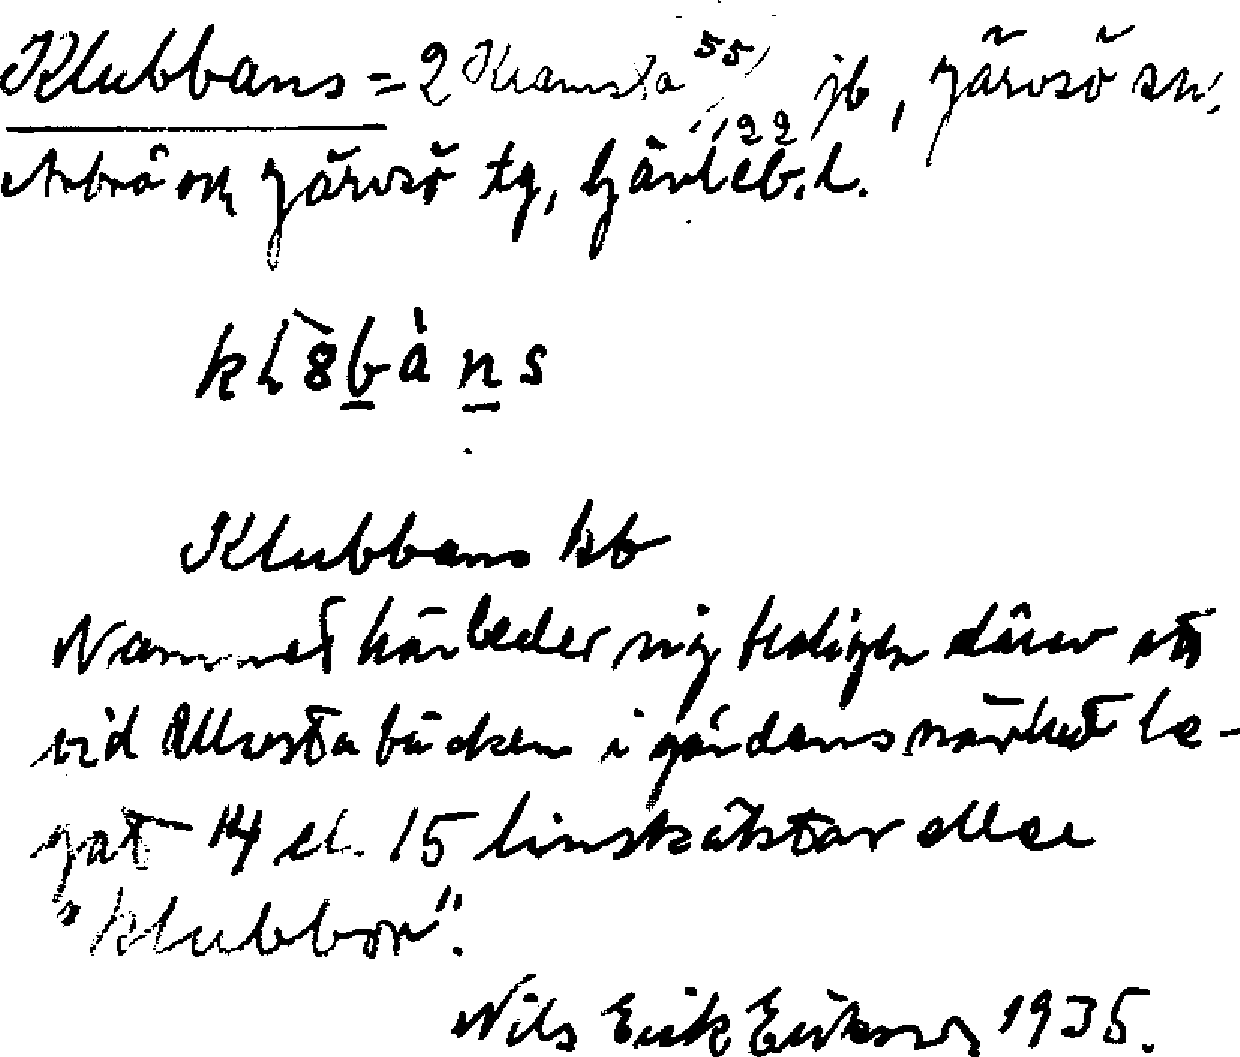 Klubbans = 2 Kramsta 55/122 jb, Järvsö sn,
Arbrå och Järvsö tg, Gävleb. l.
Klubbans kb
Namnet härleder sig troligen därav att
vid Ullsesta bäcken i gårdens närhet le-
gat 14 el. 15 linskäktar eller
"klubbor".
Nils Erik Eriksson 1935.